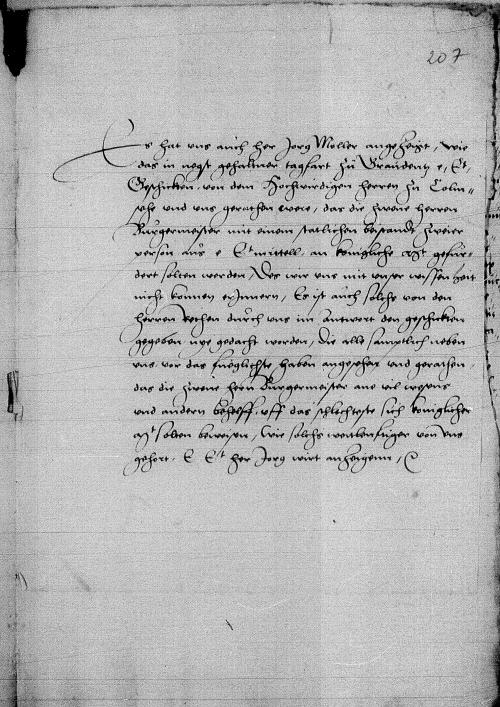 207
Es hat uns auch her Jorg Moller angezeigt, wie
das in negst gehaltner tagfart zu Graudentz e. Et.
Geschicken, von dem Hochwirdigen herren zu Colm=
sehe und uns geraten were, das die zwene herren
Burgermeister mit einem statlichen beystande zweier
person aus e Et mittell, an konigliche Mt gefur=
dert solten werden, Des wir uns mit unser wissenheit
nicht konnen erInnern, Es ist auch solchs von den
herren Rethen durch uns im antwort den geschickten
gegeben nye gedacht worden, die alle samptlich neben
uns vor das fuglichste haben angesehen und geraten,
das die zwene hern Burgermeister ane vil wesens
und andern behelff, uff das schlichtste sich koniglicher
Mt solten beweisen, wie solchs von uns
gehort, E Et her Jorg wirt anzeigenn,